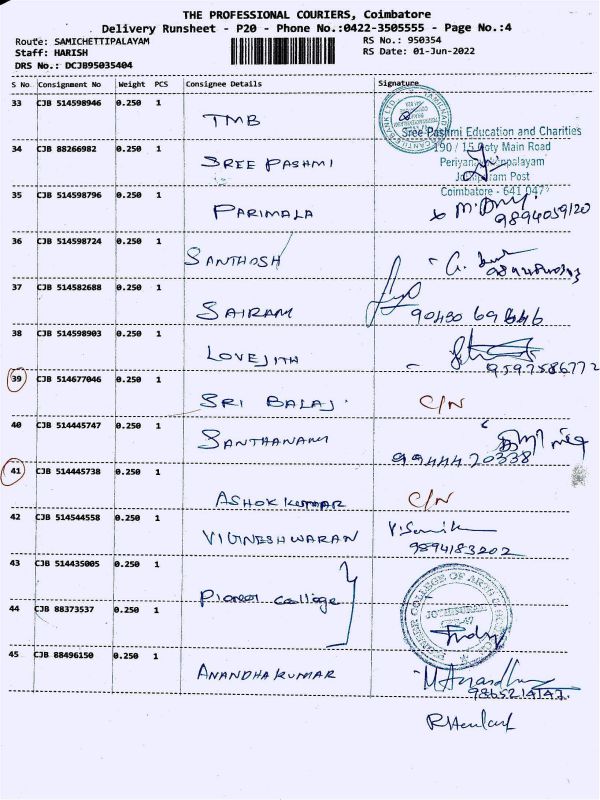 THE PROFESSIONAL COURIERS, Coimbatore
Delivery Runsheet - P20 - Phone No.:0422-3505555 - Page No.:4
Route: SAMICHETTIPALAYAM
RS No.: 950354
Staff: HARISH
RS Date: 01-Jun-2022
DRS No.: DCJB95035404
S No Consignment No Weight PCS Consignee Details Signature
33 CJB 514598946 0.250 1 TMB
Sree Pashmi Education and Charities
34 CJB 88266982 0.250 1 SREE PASHMI
Main Road
Post
Coimbatore - 641 047
35 CJB 514598796 0.250 1 PARIMALA
9894059120
36 CJB 514598724 0.250 1 SANTHOSH
37 CJB 514582688 0.250 1 SAIRAM
38 CJB 514598903 0.250 1 LOVEJITH
9597586772
39 CJB 514677046 0.250 1 SRI BALAJI C/N
40 CJB 514445747 0.250 1 SANTHANAM
9944420338
41 CJB 514445738 0.250 1 ASHOK KUMAR C/N
42 CJB 514544558 0.250 1 VIGNESHWARAN
9894183202
43 CJB 514435005 0.250 1 Pioneer College
44 CJB 88373537 0.250 1
45 CJB 88496150 0.250 1 ANANDHAKUMAR